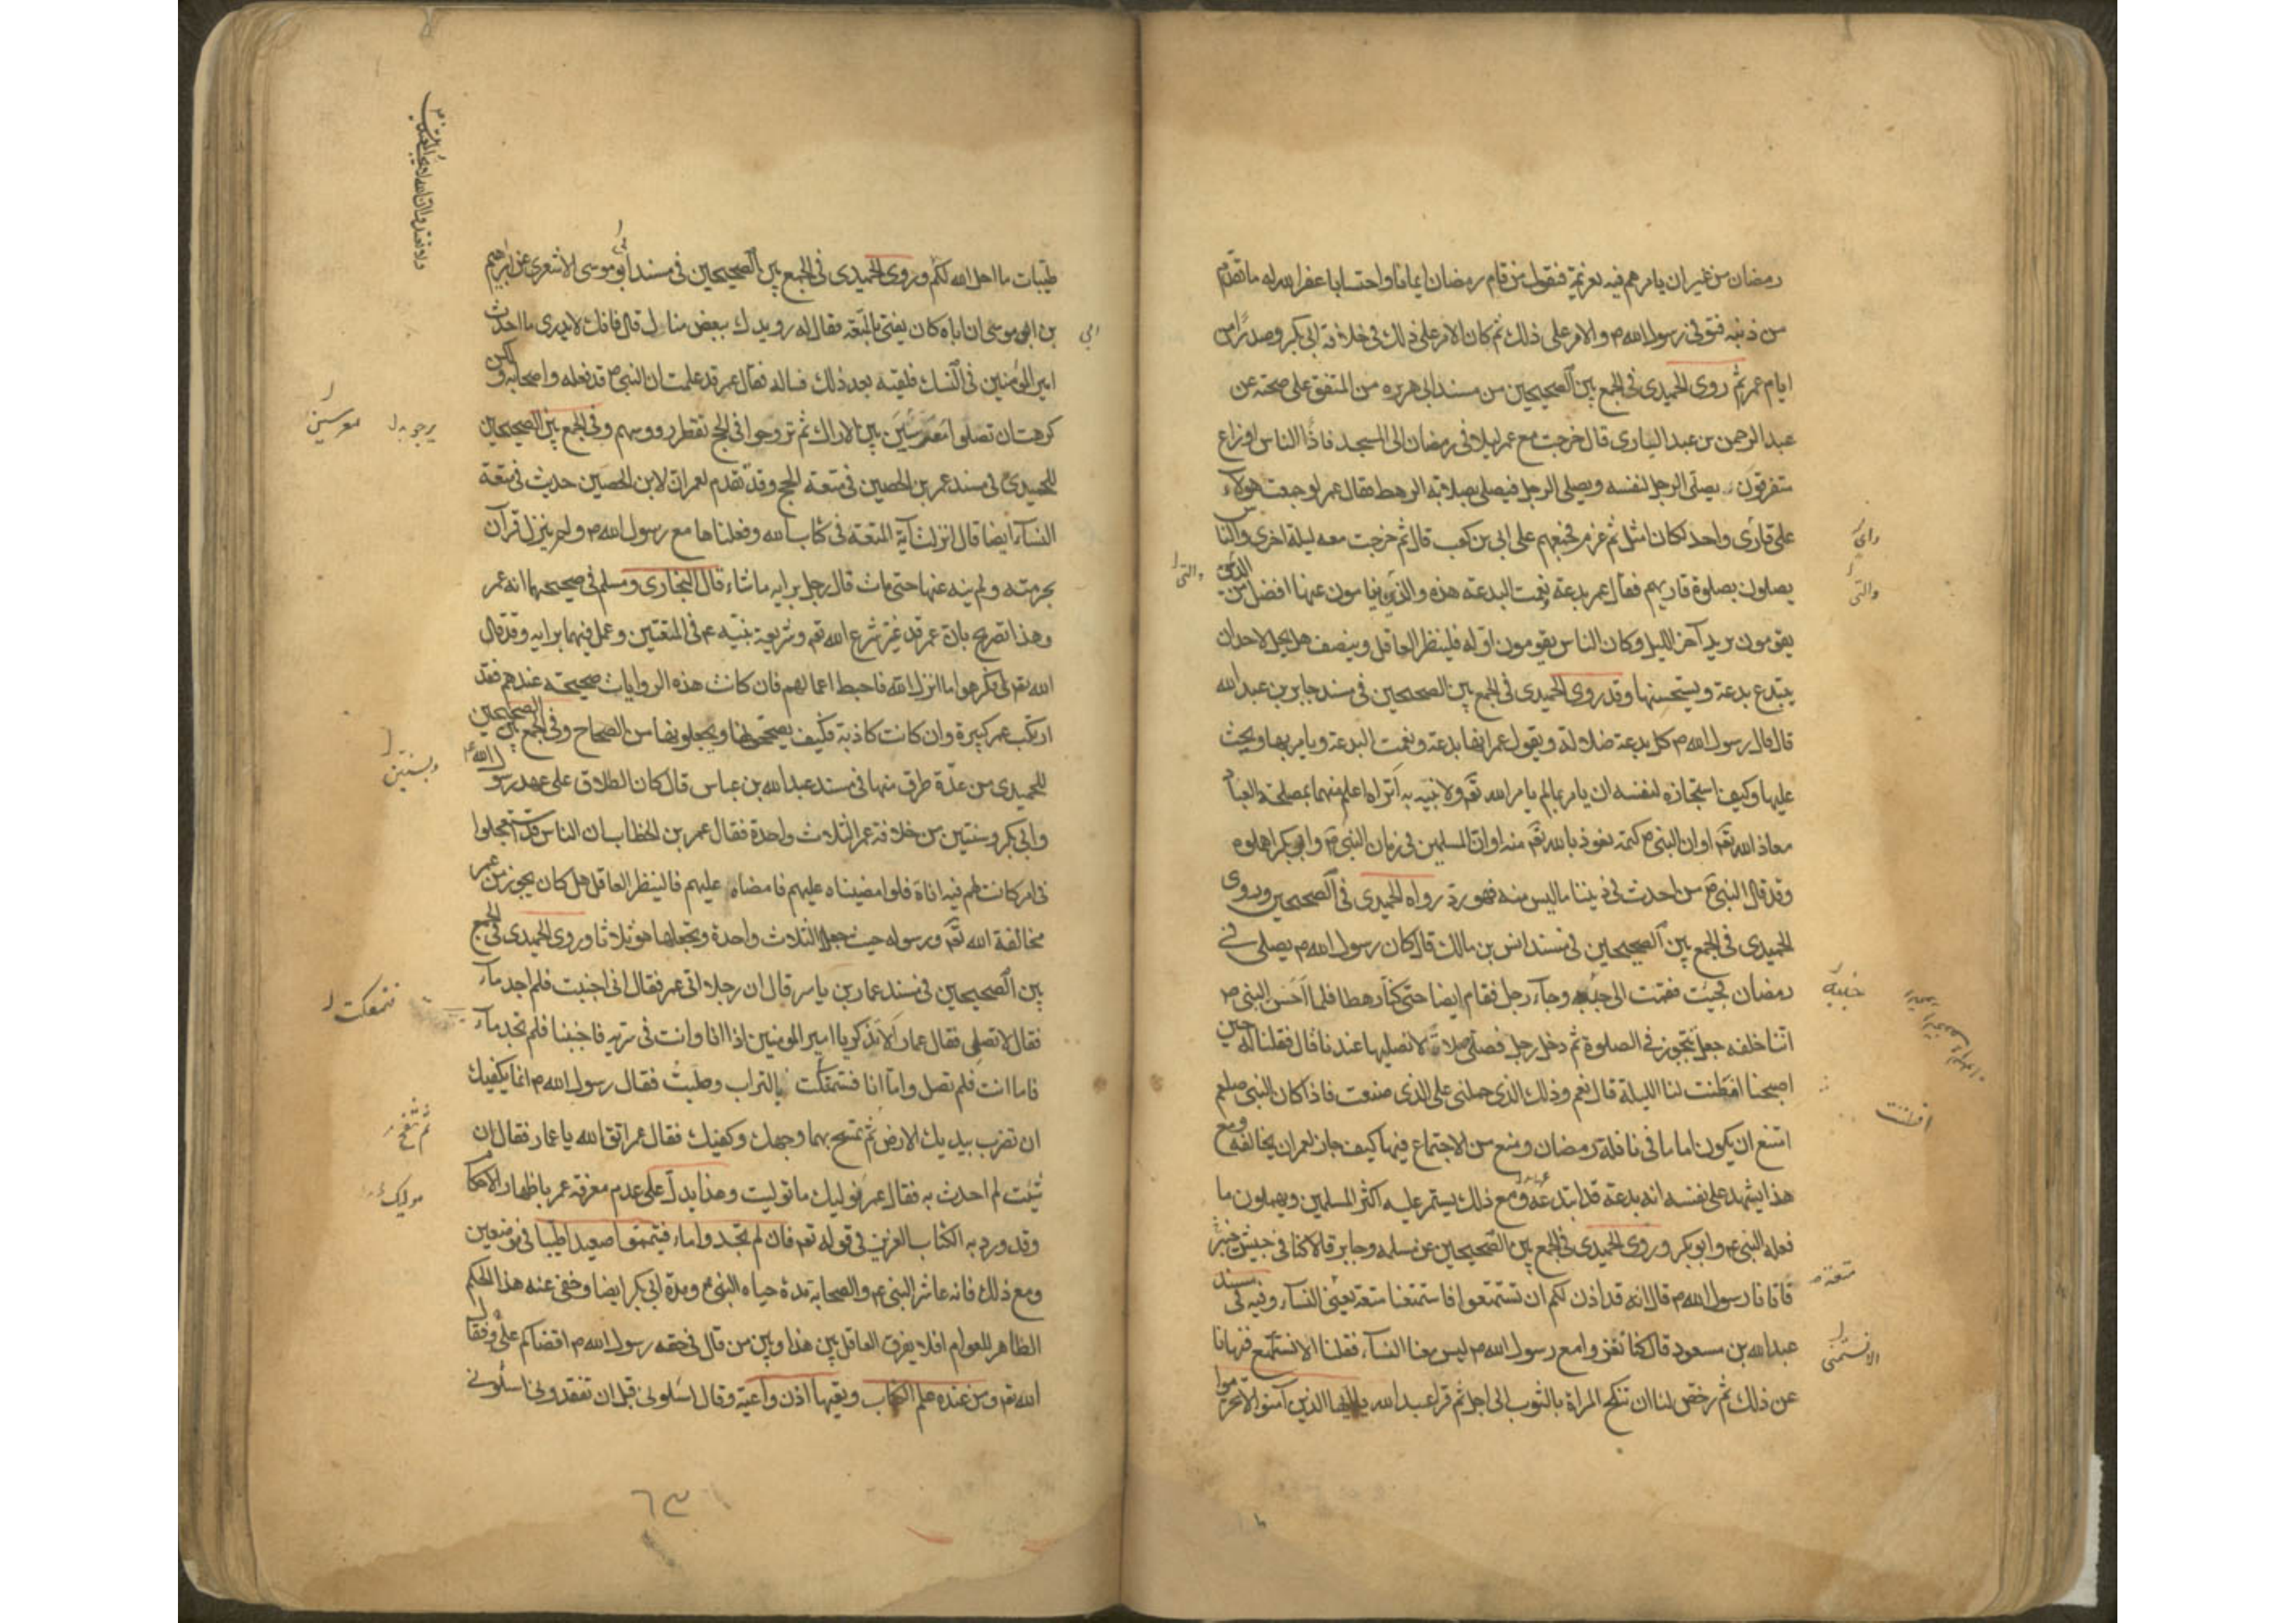 رمضان من غير ان يامرهم فيه بعزيمة فنقول من قام رمضان ايمانا واحتسابا غفر الله له ما تقدم
من ذنبه فتوفي رسول الله ص والامر على ذلك ثم كان الامر على ذلك في خلافة ابي بكر وصدرا من
ايام عمر ثم روى الحميدى في الجمع بين الصحيحين من مسند ابي هريره من المتفق على صحته عن
عبد الرحمن بن عبد البارى قال خرجت مع عمر ليلا في رمضان الى المسجد فاذا الناس اوزاع
متفرقون يصلى الرجل لنفسه ويصلى الرجل فيصلى بصلاته الرهط فقال عمر لو جمعت هولاء
على قارى واحد لكان امثل ثم عزم فجمعهم على ابى بن كعب قال ثم خرجت معه ليلة اخرى والناس
يصلون بصلوة قاريهم فقال عمر بدعة نعمت البدعة هذه والذين ينامون عنها افضل من الذين
يقومون يريد آخر الليل وكان الناس يقومون اوله فلينظر العاقل وينصف هل يحل لاحد ان
يبتدع بدعة ويستحسنها وقد روى الحميدى في الجمع بين الصحيحين في مسند جابر بن عبد الله
قال قال رسول الله ص كل بدعة ضلالة ويقول عمر انها بدعة ونعمت البدعة ويامر بها ويحث
عليها وكيف استجازه لنفسه ان يامر بما لم يامر الله تعم ولا نبيه به اتراه اعلم منهما بمصلحة العباد
معاذ الله تعم او ان النبى ص كتمه نعوذ بالله تعم منه او ان المسلمين في زمان النبى ص وابي بكر اهملوه
وقد قال النبى ص من احدث في ديننا ما ليس منه فهو رد رواه الحميدى فى الصحيحين وروى
الحميدى فى الجمع بين الصحيحين فى مسند انس بن مالك قال كان رسول الله ص يصلى في
رمضان فجئت فقمت الى جنبه وجاء رجل فقام ايضا حتى كنا رهطا فلما احس النبى ص
اننا خلفه جعل يتجوز فى الصلوة ثم دخل رجل فصلى صلاة لا نصليها عندنا قال فقلنا له حين
اصبحنا افطنت لنا الليلة قال نعم وذلك الذى حملنى على الذى صنعت فاذا كان النبى صلعم
امتنع ان يكون اماما فى نافلة رمضان ومنع من الاجتماع فيها كيف جاز لعمر ان يخالفه ومع
هذا يشهد على نفسه انه بدعة قد ابتدعه ومع ذلك يستمر عليه اكثر المسلمين ويهملون ما
فعله النبى ع وابو بكر وروى الحميدى فى الجمع بين الصحيحين عن سلمه وجابر قالا كنا فى جيش
فاتانا رسول الله ص قال انه قد اذن لكم ان تستمتعوا فاستمتعنا متعة يعنى النساء وفيه فى مسند
عبد الله بن مسعود قال كنا نغزوا مع رسول الله ص ليس معنا النساء فقلنا الا نستمتع فنهانا
عن ذلك ثم رخص لنا ان ننكح المراة بالثوب الى اجل ثم قرا عبد الله يا ايها الذين آمنوا لا تحرموا
واى
والتى
والتى
جنبه
افطنت
متعة
طيبات ما احل الله لكم وروى الحميدى فى الجمع بين الصحيحين فى مسند ابو موسى الاشعرى عن ابرهيم
بن ابى موسى ان اباه كان يفتى بالمتعة فقال له رويدك ببعض فانك لا تدرى ما احدث
امير المؤمنين فى النسك فلقيته بعد ذلك فساله فقال عمر قد علمت ان النبى ص قد فعله واصحابه ولكن
كرهت ان تصلوا معرسين بين الاراك ثم تروحوا فى الحج تقطر رووسهم وفى الجمع بين الصحيحين
للحميدى فى مسند عمر بن الحصين فى متعة الحج وقد تقدم لعمران لابن الحصين حديث فى متعة
النساء ايضا قال انزلت آية المتعة فى كتاب الله وفعلناها مع رسول الله ص ولم ينزل قرآن
بحرمته ولم ينه عنها حتى مات قال رجل برايه ما شاء قال البخارى ومسلم فى صحيحهما انه عمر
وهذا تصريح بان عمر قد غير شرع الله تعم وشريعة نبيه عم فى المتعتين وعمل فيهما برايه وقد قال
الله تعم كرهوا ما انزل الله فاحبط اعمالهم فان كانت هذه الروايات صحيحة عندهم فقد
ارتكب عمر كبيرة وان كانت كاذبة فكيف يصححونها ويجعلونها من الصحاح وفى الجمع بين الصحيحين
للحميدى من عدة طرق منها فى مسند عبد الله بن عباس قال كان الطلاق على عهد رسول الله ع
وابى بكر وسنتين من خلافة عمر الثلاث واحدة فقال عمر بن الخطاب ان الناس قد استعجلوا
فى امر كانت لهم فيه اناة فلو امضيناه عليهم فامضاه عليهم فالينظر العاقل هل كان يجوز من عمر
مخالفة الله تعم ورسوله حيث جعل الثلاث واحدة ويجعلها هو ثلاثا وروى الحميدى فى الجمع
بين الصحيحين فى مسند عمار بن ياسر قال ان رجلا اتى عمر فقال انى اجنبت فلم اجد ماء
فقال لا تصلى فقال عمار الا تذكر يا امير المومنين اذ انا وانت فى سريه فاجنبنا فلم نجد ماء
فاما انت فلم تصل واما انا فتمعكت بالتراب وصليت فقال رسول الله ص انما يكفيك
ان تضرب بيديك الارض ثم تمسح بهما وجهك وكفيك فقال عمر اتق الله يا عمار فقال ان
شئت لم احدث به فقال عمر نوليك ما توليت وهذا يدل على عدم معرفة عمر باظهار الاحكام
وقد ورد به الكتاب العزيز فى قوله تعم فان لم تجدوا ماء فتيمموا صعيدا طيبا فى موضعين
ومع ذلك فانه عاشر النبى ص والصحابة مدة حياه النبى ص ومدة ابى بكر ايضا وخفى عنه هذا الحكم
الظاهر للعوام افلا يفرق العاقل بين هذا وبين من قال فى حقه رسول الله ص اقضاكم على وقال
الله تعم ومن عنده علم الكتاب وتعيها اذن واعية وقال اسلونى قبل ان تفقدونى اسلونى
ابى
معرسين
وسنتين
فتمعكت
ثم تنفخ
نوليك
٦٣١